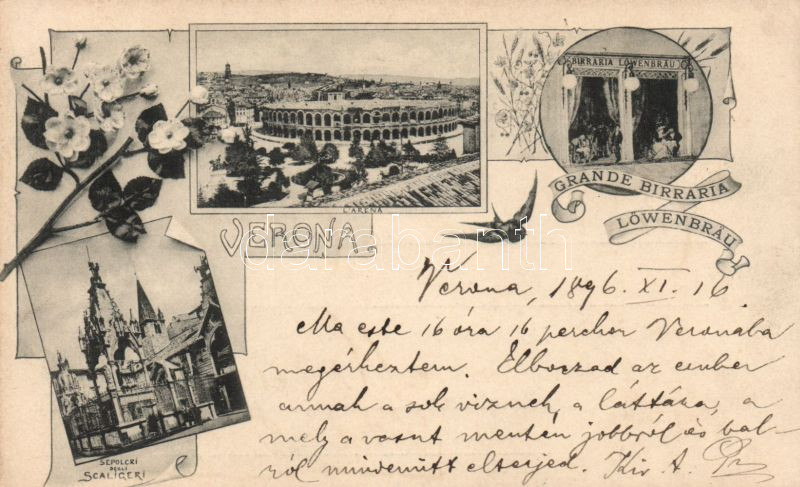 BIRRARIA LÖWENBRÄU
L'ARENA
GRANDE BIRRARIA
LÖWENBRÄU
VERONA
darabanth
Verona, 1896. XI. 16
Ma este 16 óra 16 perckor Veronába
megérkeztem. Elborzad az ember
annak a sok víznek, a láttára, a
mely a vasút mentén jobbról és bal-
ról mindenütt elterjed. Kir. A.
SEPOLCRI
DEGLI
SCALIGERI